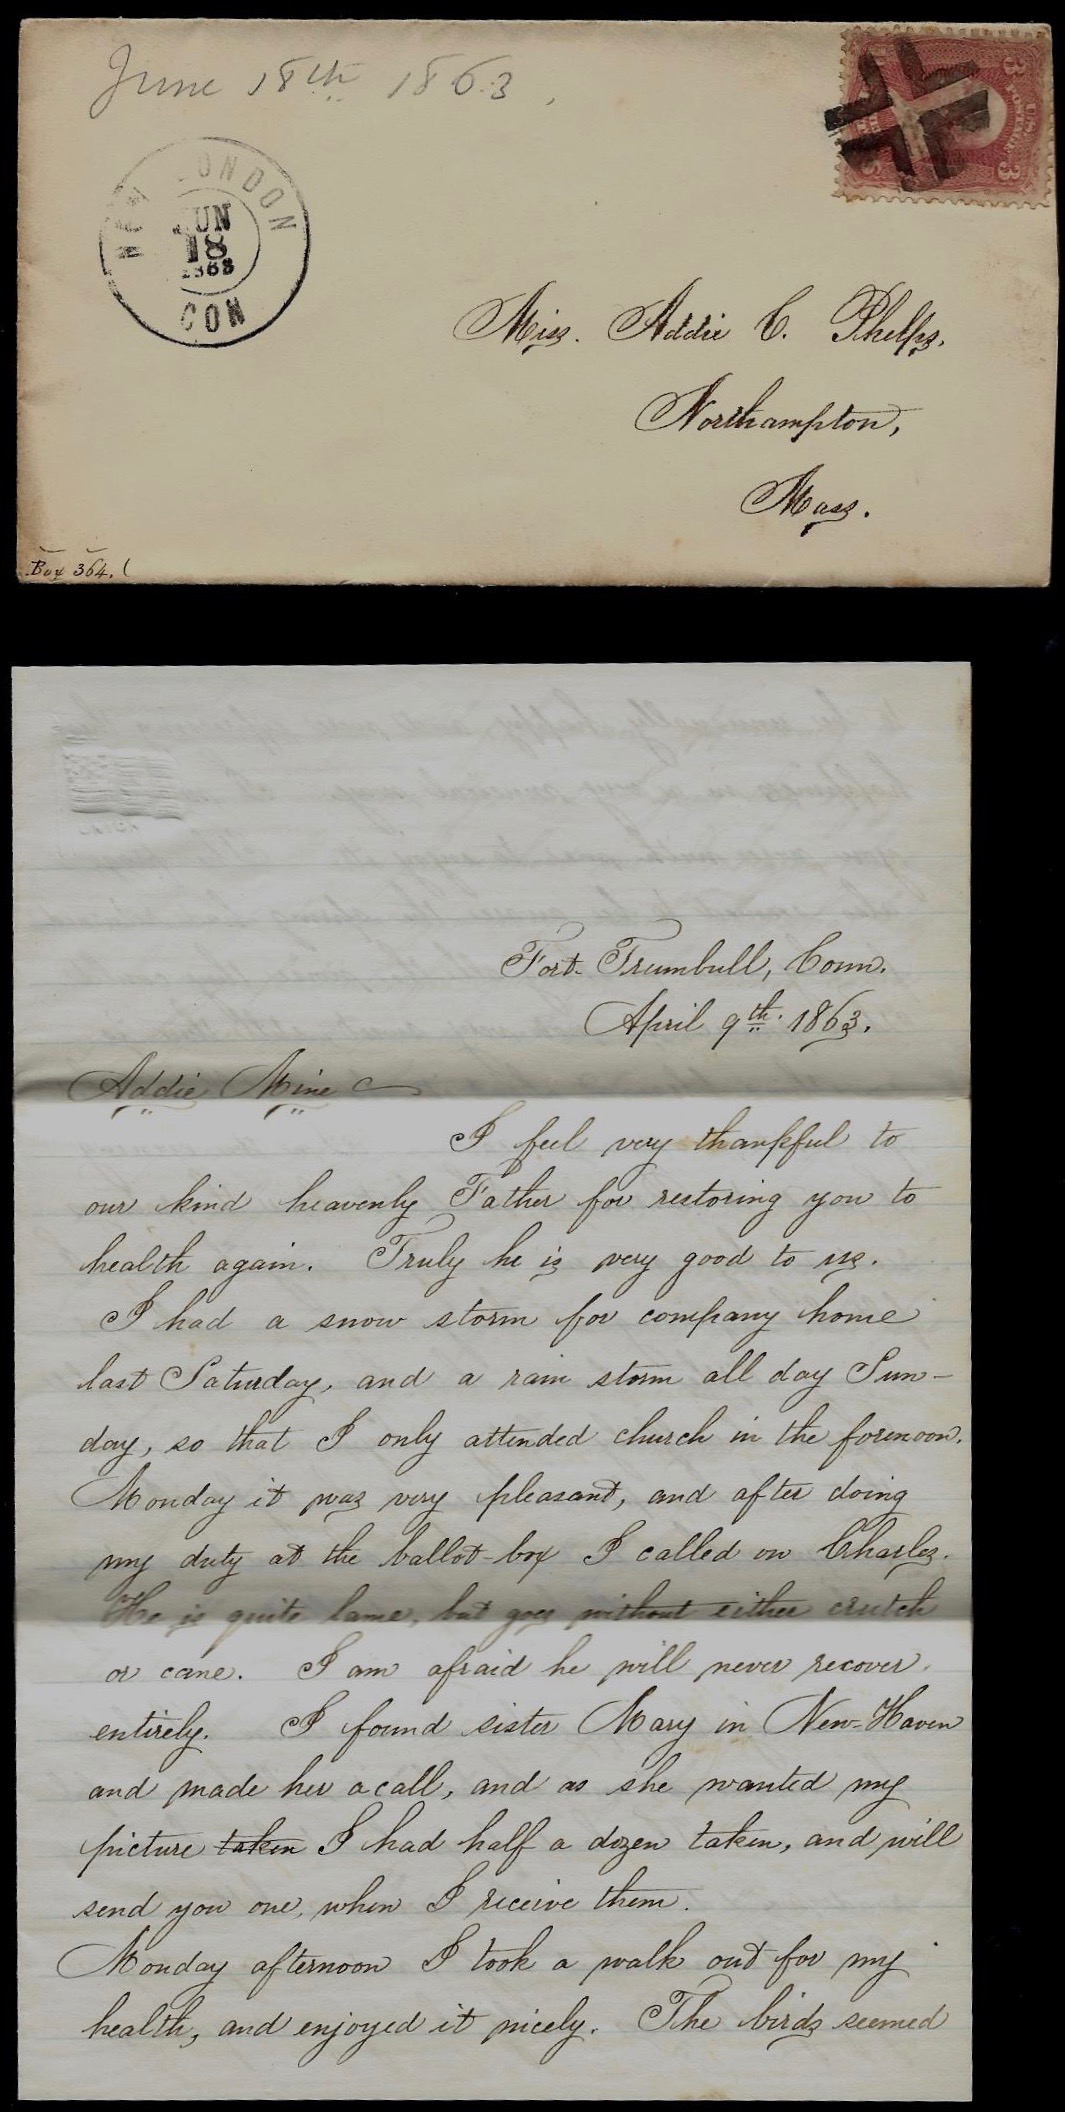 June 18th 1863.
NEW LONDON
JUN
18
1863
CON
3
3
U.S. POSTAGE
Miss. Addie C. Phelps.
Northampton,
Mass.
Box 364.
Fort Trumbull, Conn.
April 9th. 1863.
Addie Mine
I feel very thankful to
our kind heavenly Father for restoring you to
health again. Truly he is very good to us.
I had a snow storm for company home
last Saturday, and a rain storm all day Sun-
day, so that I only attended church in the forenoon.
Monday it was very pleasant, and after doing
my duty at the ballot-box I called on Charles.
He is quite lame, but goes without either crutch
or cane. I am afraid he will never recover
entirely. I found sister Mary in New-Haven
and made her a call, and as she wanted my
picture taken I had half a dozen taken, and will
send you one, when I receive them.
Monday afternoon I took a walk out for my
health, and enjoyed it nicely. The birds seemed